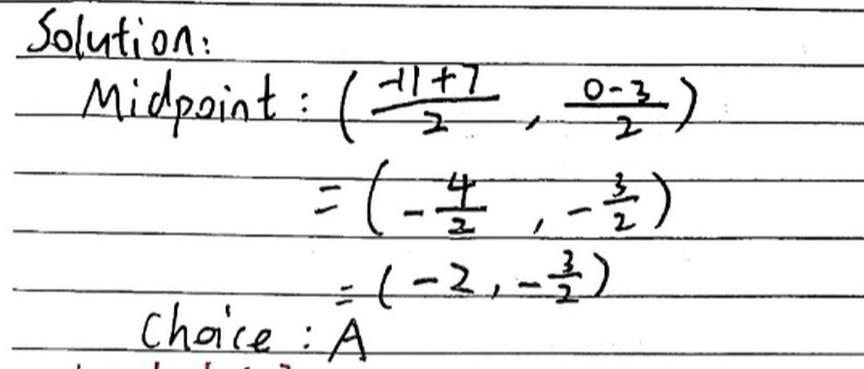 Solution:
Midpoint: (\frac{-11+7}{2}, \frac{0-3}{2})
= (-\frac{4}{2}, -\frac{3}{2})
= (-2, -\frac{3}{2})
Choice: A